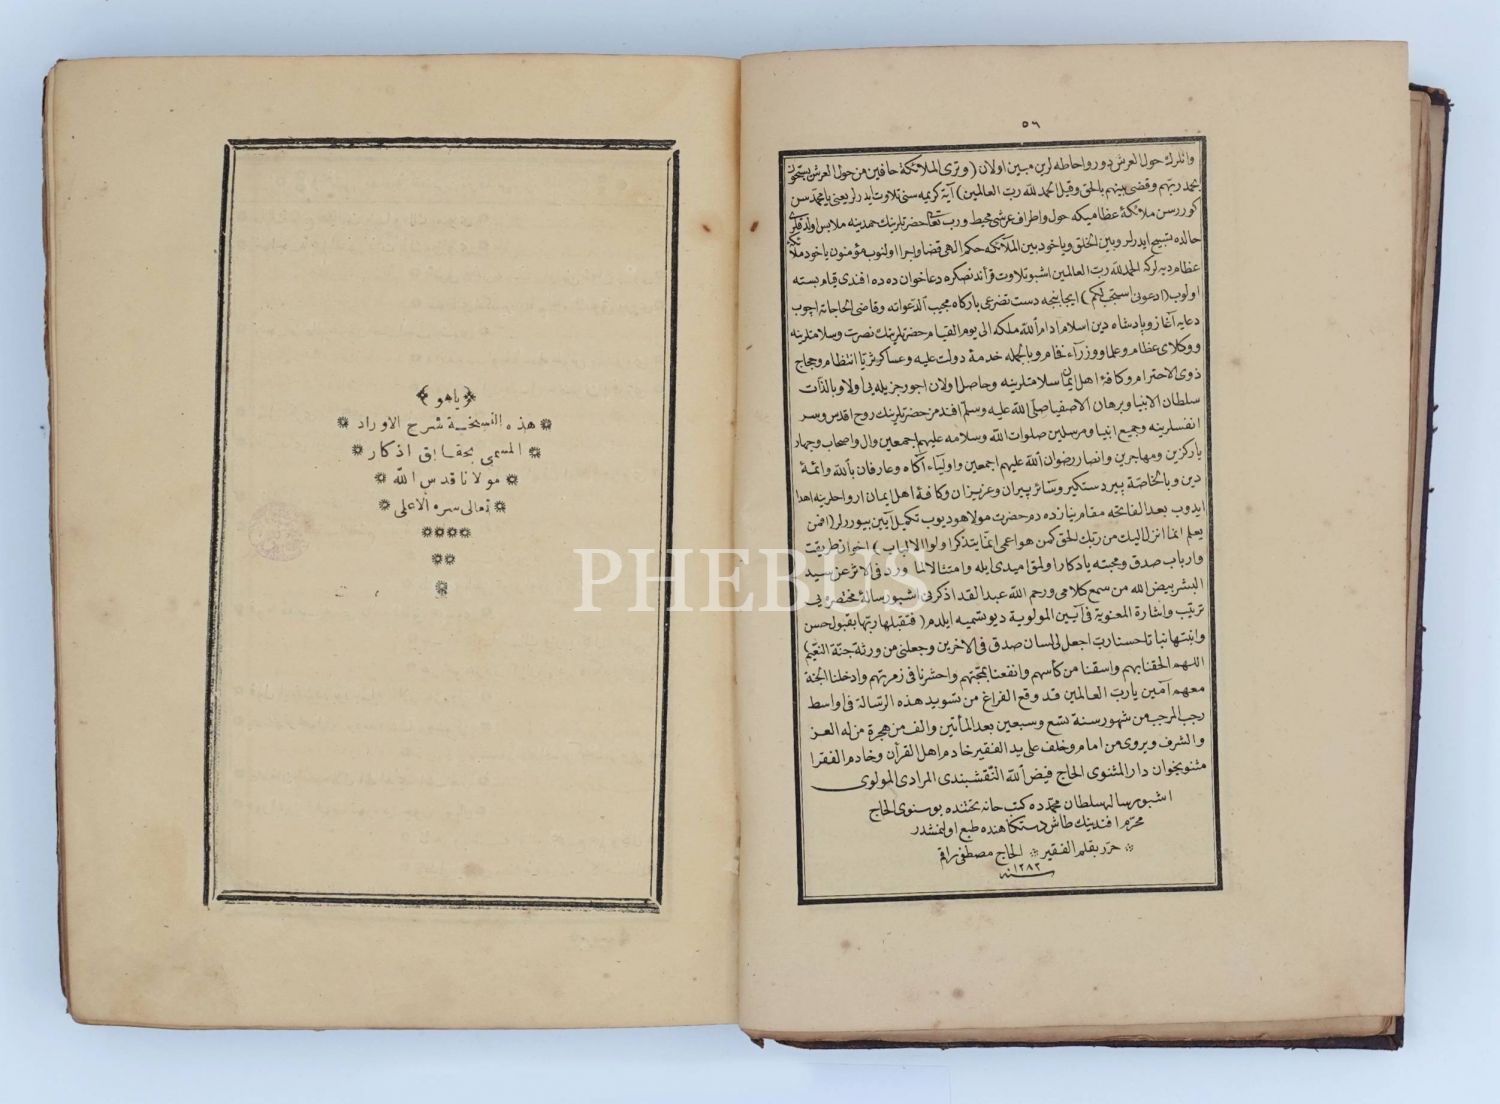 ٥٦
وانلرك حول العرش دور واحاطه لرين مبين اولان (وترى الملائكة حافين من حول العرش يسبحون
بحمد ربهم وقضى بينهم بالحق وقيل الحمد لله رب العالمين) آية كريمه سنى تلاوت ايدرلر يعنى يا محمد سن
كوررسن ملائكۀ عظاميكه حول واطراف عرشى محيط ورب تعالى حضرتلرينك حمدينه ملابس اولدقلرى
حالده تسبيح ايدرلر وبين الخلق وياخود بين الملائكه حكم الهى قضا واجرا اولنوب مؤمنون ياخود ملائكۀ
عظام ديه لركه الحمد لله رب العالمين اشبو تلاوت قرآندنصكره دعاخوان ده ده افندى قيام بسته
اولوب (ادعونى استجب لكم) ايجابنجه دست تضرعى باركاه مجيب الدعواته وقاضى الحاجاته اچوب
دعايه آغاز وپادشاه دين اسلام ادام الله ملكه الى يوم القيام حضرتلرينك نصرت وسلامتلرينه
ووكلاى عظام وعلما ووزرآء فخام وبالجمله خدمۀ دولت عليه وعساكر ثريا انتظام وحجاج
ذوى الاحترام وكافۀ اهل ايمان سلامتلرينه وحاصل اولان اجور جزيله يى اولا وبالذات
سلطان الانبيا وبرهان الاصفيا صلى الله عليه وسلم افندمز حضرتلرينك روح اقدس وسر
انفسلرينه وجميع انبيا ومرسلين صلوات الله وسلامه عليهم اجمعين وال واصحاب وچهار
يار كزين ومهاجرين وانصار رضوان الله عليهم اجمعين واولياء آكاه وعارفان بالله وائمۀ
دين وبالخاصه پير دستكير وسائر پيران وعزيزان وكافۀ اهل ايمان ارواحلرينه اهدا
ايدوب بعد الفاتحه مقام نيازده دم حضرت مولانا هو ديوب تكميل آيين بيوررلر (افمن
يعلم انما انزل اليك من ربك الحق كمن هو اعمى انما يتذكر اولوا الالباب) اخوان طريقت
وارباب صدق ومحبته يادكار اولمق اميدى ايله وامتثالا لما ورد فى الاثر عن سيد
البشر بيض الله من سمع كلامى ورحم الله عبدا قد اذكرنى اشبو رسالۀ مختصره يى
ترتيب واشارة المعنوية فى آيين المولوية ديو تسميه ايلدم (فتقبلها ربها بقبول حسن
وانبتها نباتا حسنا رب اجعل لى لسان صدق فى الاخرين وجعلنى من ورثة جنة النعيم)
اللهم الحقنا بهم واسقنا من كأسهم وانفعنا بمحبتهم واحشرنا فى زمرتهم وادخلنا الجنة
معهم آمين يارب العالمين قد وقع الفراغ من تسويد هذه الرسالة فى اواسط
رجب المرجب من شهور سنة تسع وسبعين بعد المأتين والف من هجرة من له العز
والشرف ويروى من امام وخلف على يد الفقير خادم اهل القرآن وخادم الفقرا
مثنويخوان دار المثنوى الحاج فيض الله النقشبندى المرادى المولوى
اشبو رساله سلطان محمدده كتبخانه تحتنده بوسنوى الحاج
محرم افندينك طاش دستكاهنده طبع اولنمشدر
حرر بقلم الفقير الحاج مصطفى راقم
سنه ١٢٨٣
﴿ياهو﴾
هذه النسخة شرح الاوراد
المسمى بحقايق اذكار
مولانا قدس الله
تعالى سره الاعلى
PHEBUS